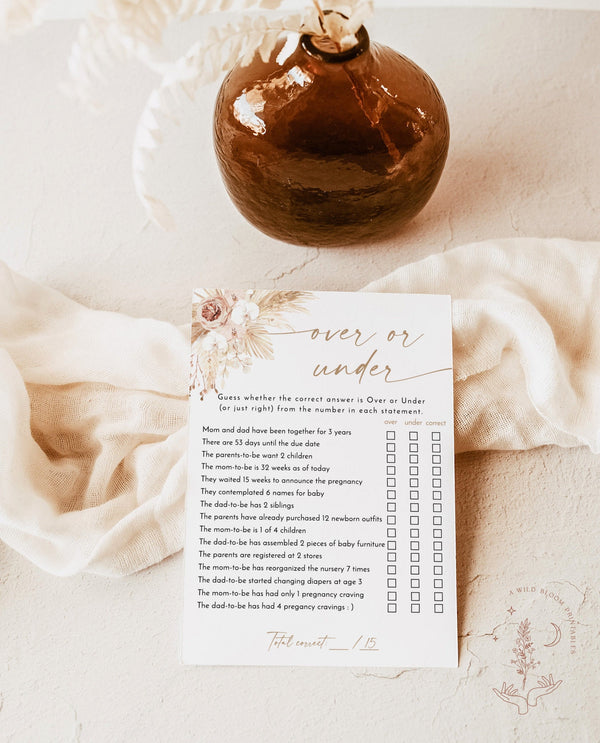 over or
under
Guess whether the correct answer is Over or Under
(or just right) from the number in each statement.
over under correct
Mom and dad have been together for 3 years
There are 53 days until the due date
The parents-to-be want 2 children
The mom-to-be is 32 weeks as of today
They waited 15 weeks to announce the pregnancy
They contemplated 6 names for baby
The dad-to-be has 2 siblings
The parents have already purchased 12 newborn outfits
The mom-to-be is 1 of 4 children
The dad-to-be has assembled 2 pieces of baby furniture
The parents are registered at 2 stores
The mom-to-be has reorganized the nursery 7 times
The dad-to-be started changing diapers at age 3
The mom-to-be has had only 1 pregnancy craving
The dad-to-be has had 4 pegancy cravings : )
Total correct: __ / 15
A WILD BLOOM PRINTABLES